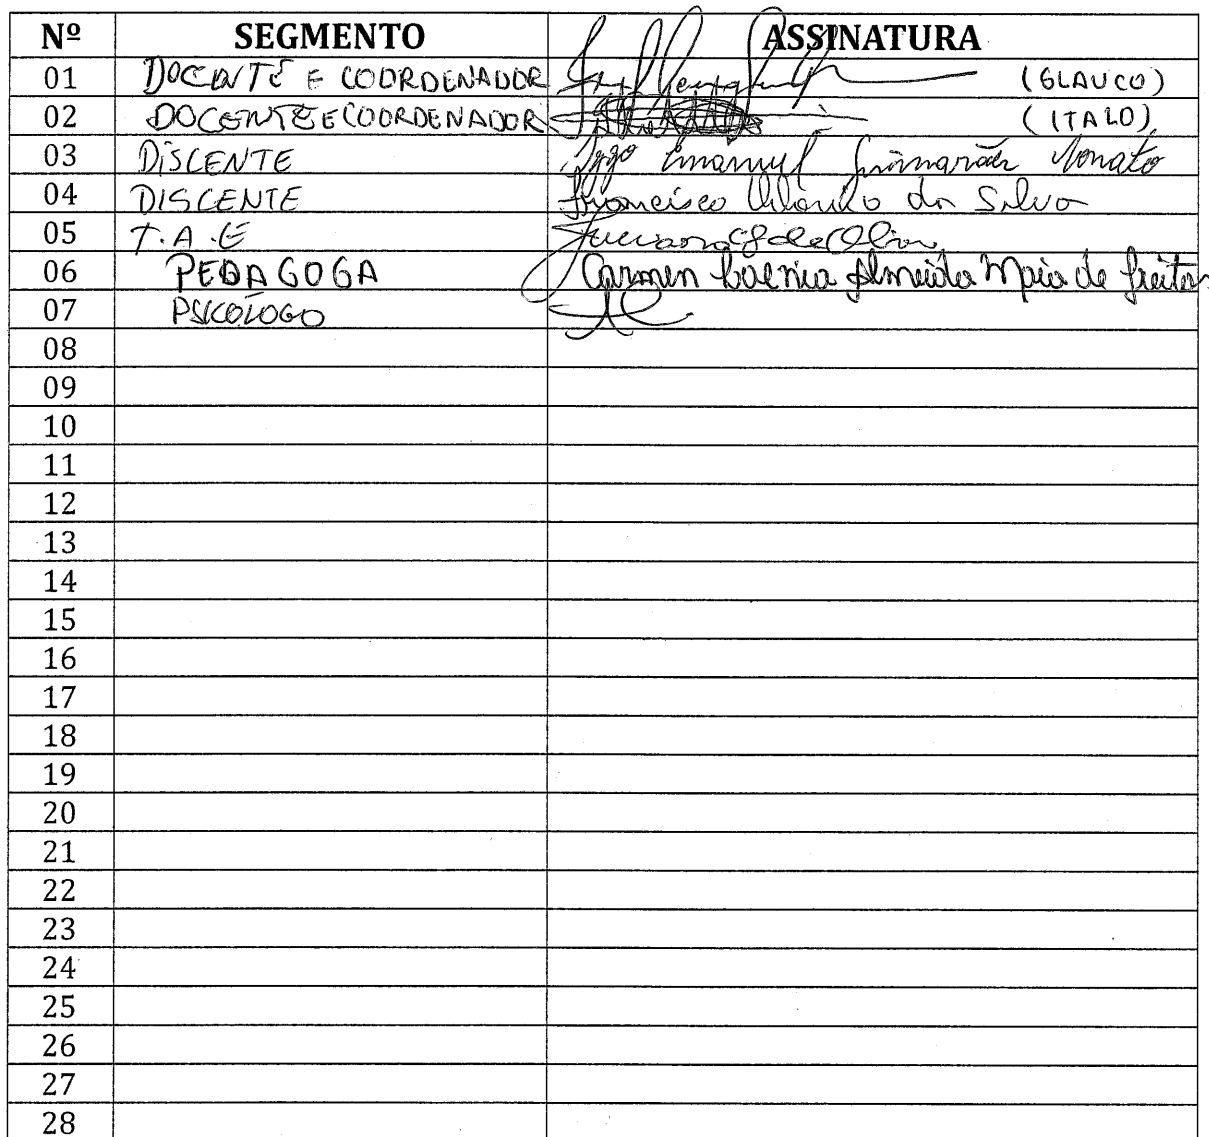 Nº SEGMENTO ASSINATURA
01 DOCENTE E COORDENADOR (GLAUCO)
02 DOCENTE E COORDENADOR (ITALO)
03 DISCENTE Iggo Emanuel Guimarães Nonato
04 DISCENTE Francisco da Silva
05 T.A.E
06 PEDAGOGA Carmen Almeida Maia de Freitas
07 PSICÓLOGO
08
09
10
11
12
13
14
15
16
17
18
19
20
21
22
23
24
25
26
27
28